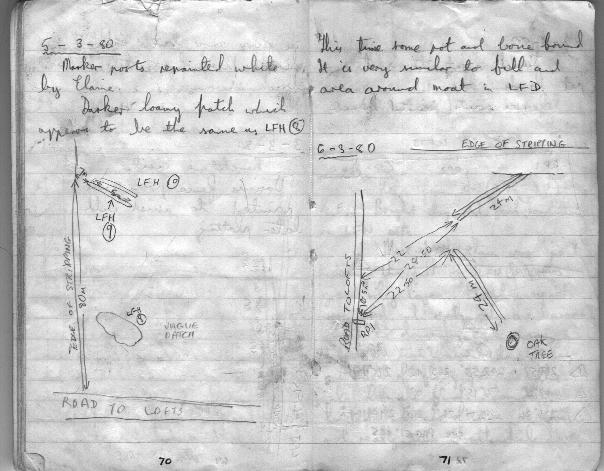 5-3-80
Marker posts repainted white
by Elaine.
Darker loamy patch which
appears to be the same as LFH 8
LFH 10
LFH
9
EDGE OF STRIPPING
80M
LFH
VAGUE
PATCH
ROAD TO LOFTS
70
This time some pot and bone found
It is very similar to fill and
area around moat in LFD
6-3-80
EDGE OF STRIPPING
24M
22
24.50
22.50
24M
ROAD TO LOFTS
RP1
OAK
TREE
71